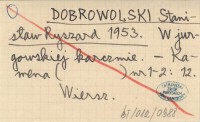 DOBROWOLSKI Stani-
sław Ryszard 1953. W jur-
gowskiej karczmie. – Ka-
mena ( ) nr 1-2: 12.
Wiersz.